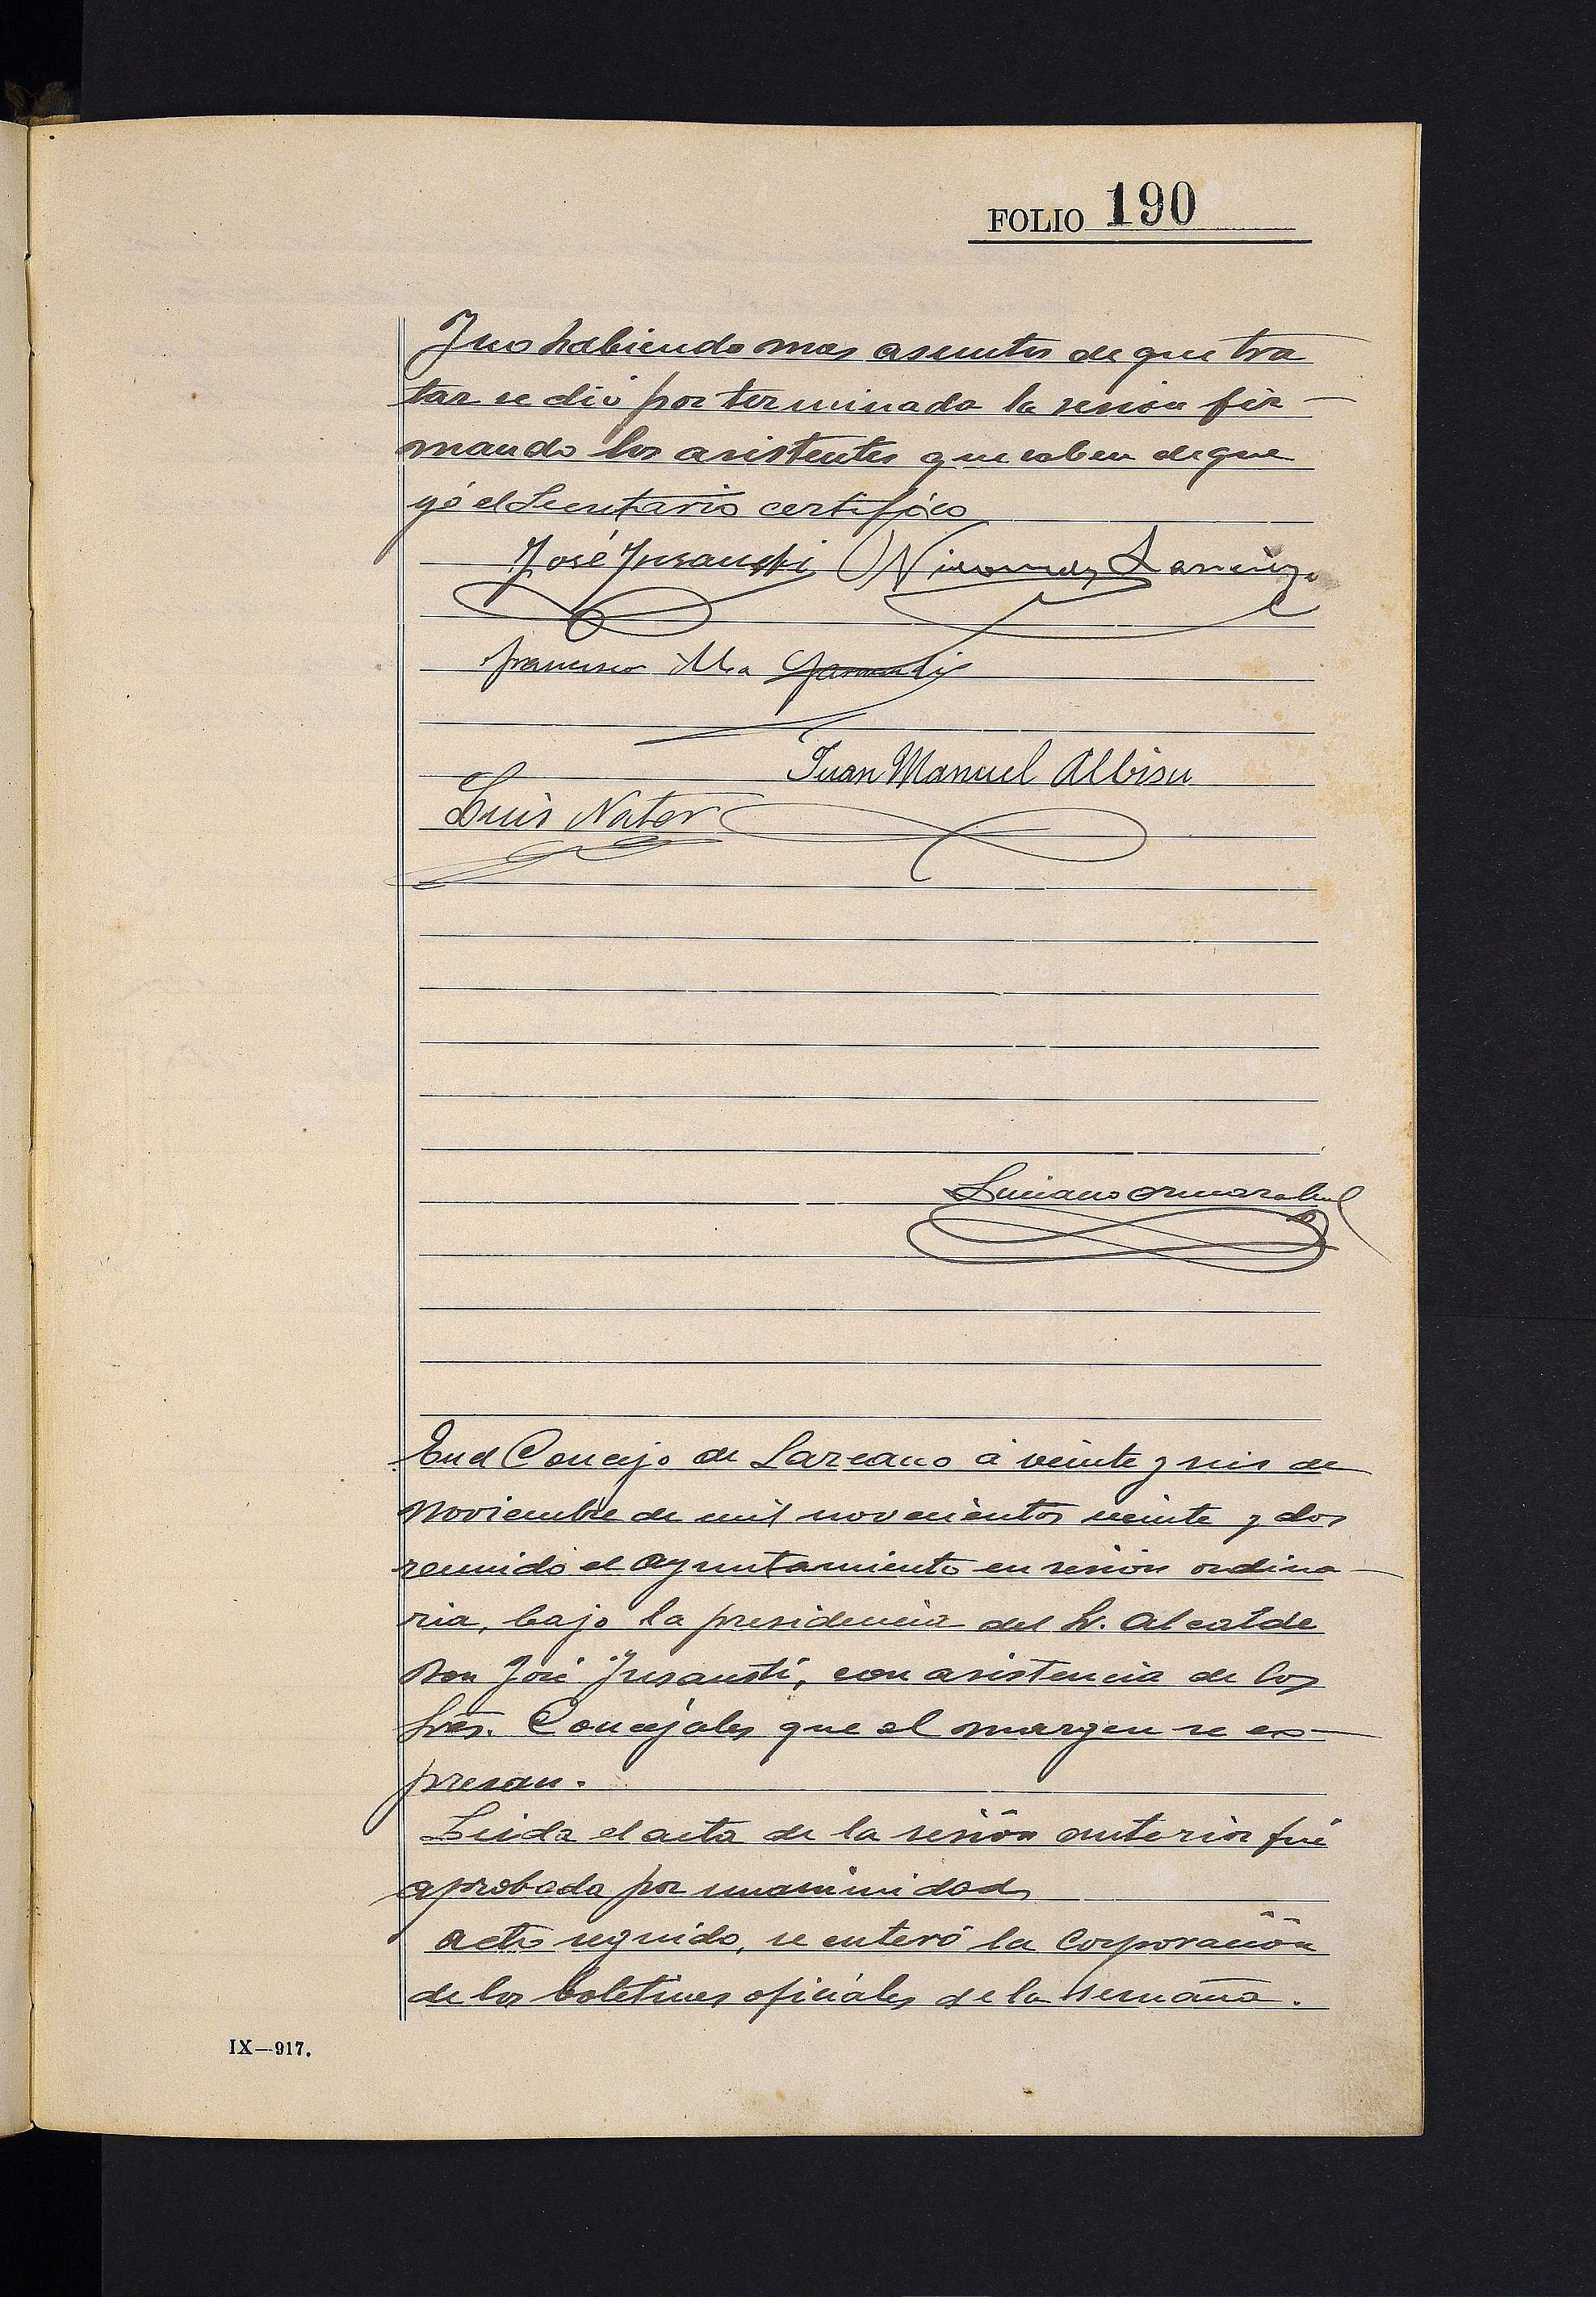 FOLIO 190
Y no habiendo mas asuntos de que tra
tar se dió por terminada la sesion fir-
mando los asistentes que saben de que
yó el Secretario certifíco
José Insausti Nicomedes
Francisco Mª
Juan Manuel Albisu
Luis Nator
Luciano
En el Concejo de Lazcano á veinte y seis de
Noviembre de mil novecientos veinte y dos
reunido el Ayuntamiento en sesión ordina-
ria, bajo la presidencia del Sr. Alcalde
Don José Insausti, con asistencia de los
Sres. Concejales que al margen se ex-
presan.
Leida el acta de la sesión anterior fué
aprobada por unanimidad
Acto seguido, se enteró la Corporación
de los boletines oficiales de la semana.
IX—917.